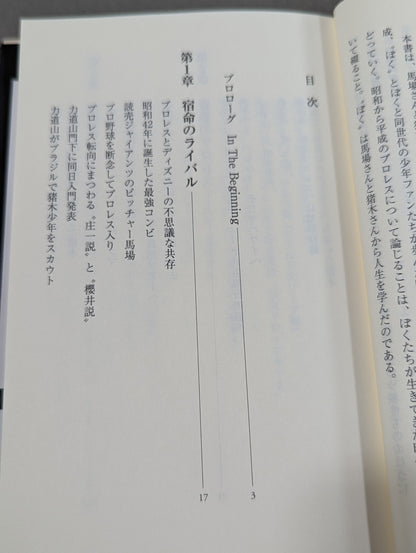 本書は、馬場さ
成、“ぼく”とぼくと同世代の少年ファンたちが歩ん
どっていく。昭和から平成のプロレスについて論じることは、ぼくたちが生きてきた
いて綴ること。“ぼく”は馬場さんと猪木さんから人生を学んだのである。
目次
プロローグ In The Beginning 3
第1章 宿命のライバル 17
プロレスとディズニーの不思議な共存
昭和42年に誕生した最強コンビ
読売ジャイアンツのピッチャー馬場
プロ野球を断念してプロレス入り
プロレス転向にまつわる“庄一説”と“櫻井説”
力道山門下に同日入門発表
力道山がブラジルで猪木少年をスカウト